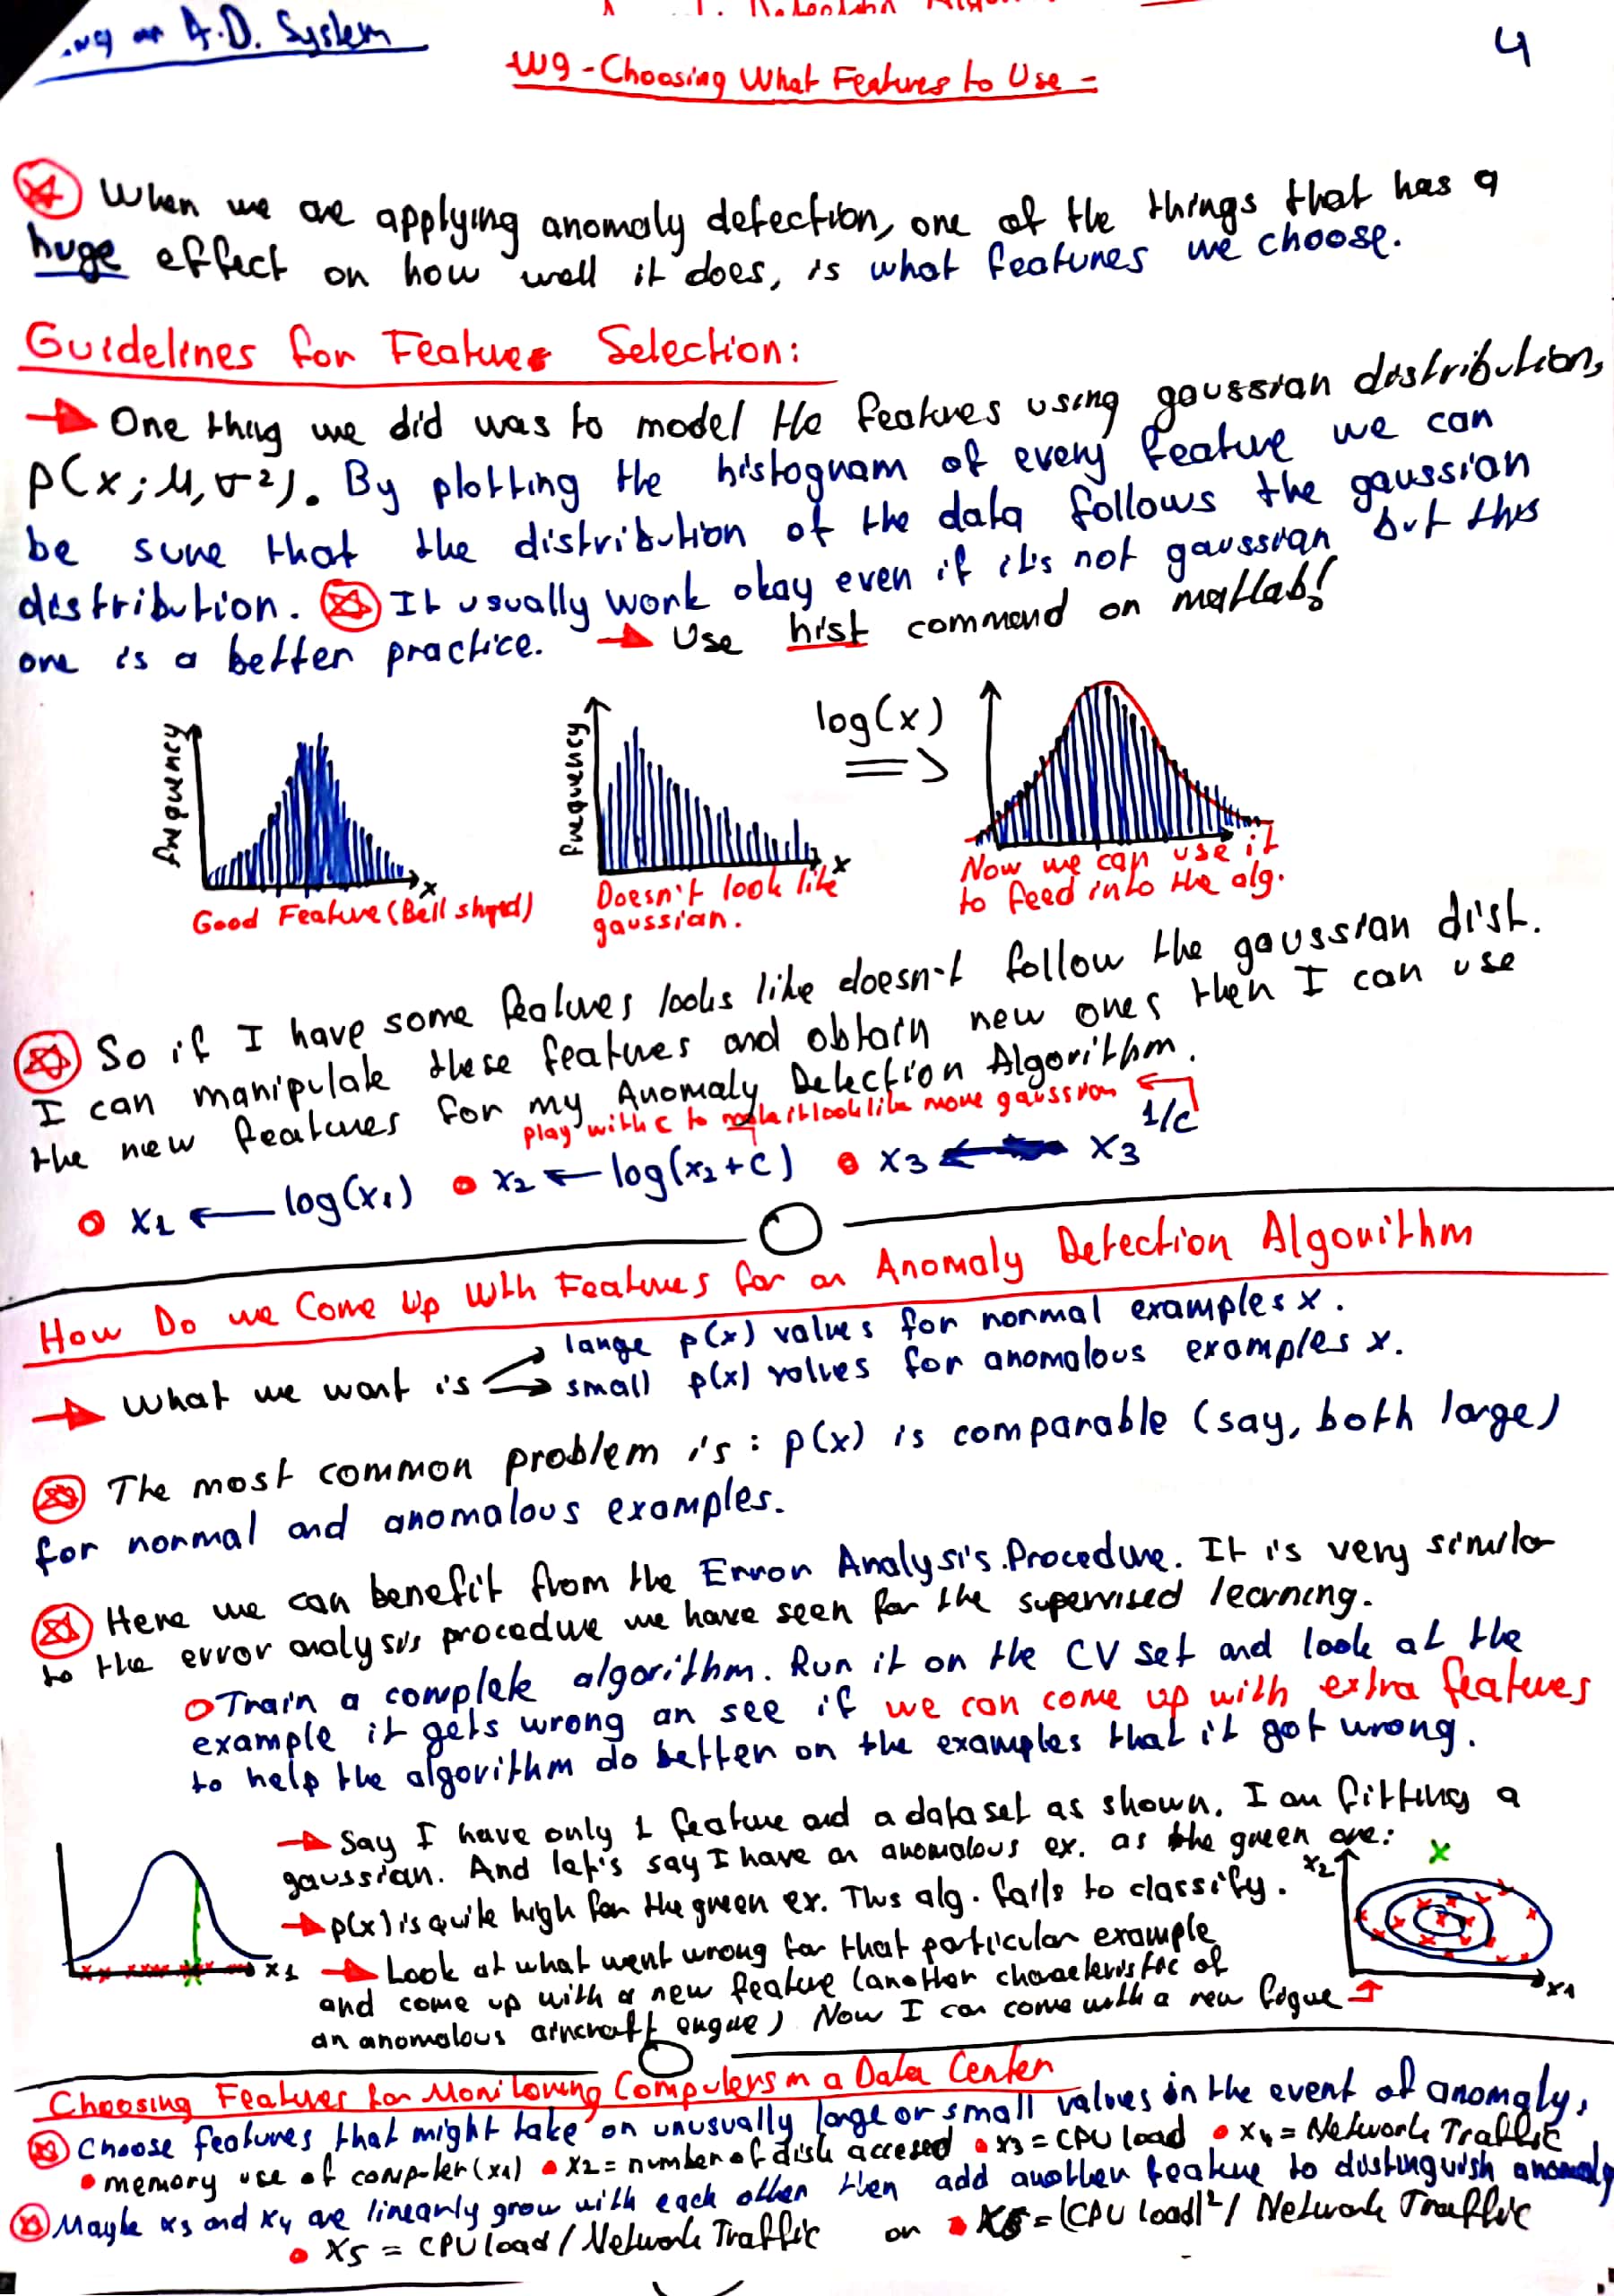 A.D. System
4
W9 - Choosing What Features to Use -
When we are applying anomaly detection, one of the things that has a
huge effect on how well it does, is what features we choose.
Guidelines for Feature Selection:
One thing we did was to model the features using gaussian distribution,
p(x; μ, σ²). By plotting the histogram of every feature we can
be sure that the distribution of the data follows the gaussian
distribution. It usually work okay even if it's not gaussian but this
one is a better practice. Use hist command on matlab!
frequency
x
Good Feature (Bell shaped)
frequency
x
Doesn't look like
gaussian.
log(x)
=>
Now we can use it
to feed into the alg.
So if I have some features looks like doesn't follow the gaussian dist.
I can manipulate these features and obtain new ones then I can use
the new features for my Anomaly Detection Algorithm.
play with c to make it look like more gaussian
x1 ← log(x1) • x2 ← log(x2+c) • x3 ← x3^1/c
How Do we Come Up With Features for an Anomaly Detection Algorithm
What we want is
large p(x) values for normal examples x.
small p(x) values for anomalous examples x.
The most common problem is: p(x) is comparable (say, both large)
for normal and anomalous examples.
Here we can benefit from the Error Analysis Procedure. It is very similar
to the error analysis procedure we have seen for the supervised learning.
Train a complete algorithm. Run it on the CV set and look at the
example it gets wrong an see if we can come up with extra features
to help the algorithm do better on the examples that it got wrong.
Say I have only 1 feature and a dataset as shown. I am fitting a
gaussian. And let's say I have an anomalous ex. as the green one:
p(x) is quite high for the green ex. This alg. fails to classify.
Look at what went wrong for that particular example
and come up with a new feature (another characteristic of
an anomalous aircraft engine) Now I can come with a new figure
x1
x2
x1
Choosing Features for Monitoring Computers in a Data Center
Choose features that might take on unusually large or small values in the event of anomaly.
• memory use of computer (x1) • x2 = number of disk accesed • x3 = CPU load • x4 = Network Traffic
Maybe x3 and x4 are linearly grow with each other then add another feature to distinguish anomaly
• x5 = CPU load / Network Traffic or • x6 = (CPU load)² / Network Traffic